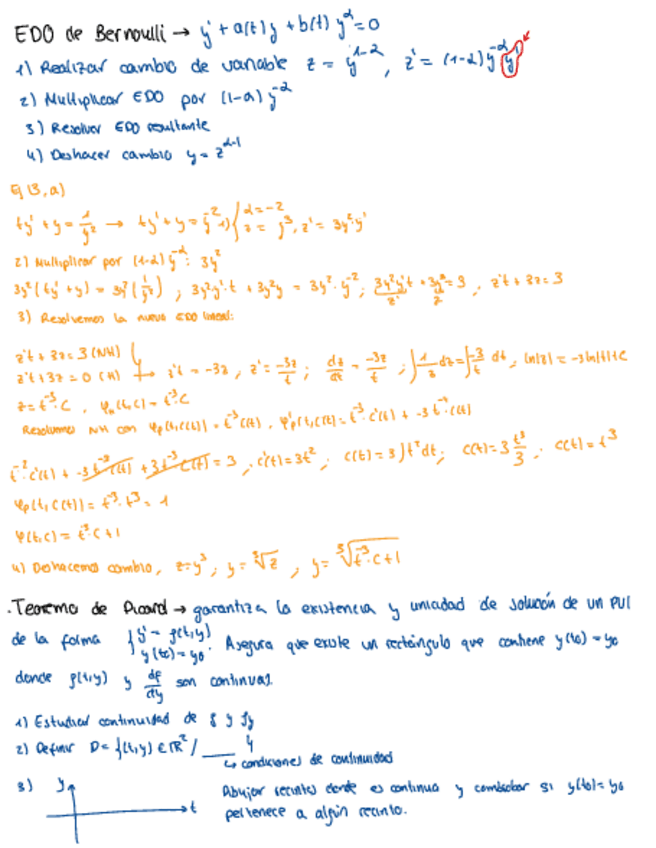 EDO de Bernoulli → y' + a(t)y + b(t) y^α = 0
1) Realizar cambio de variable z = y^{1-α}, z' = (1-α) y^{-α} y'
2) Multiplicar EDO por (1-α) y^{-α}
3) Resolver EDO resultante
4) Deshacer cambio y = z^{α-1}
Ej (3, a)
ty' + y = 1/y² → ty' + y = y^{-2} 1) { α = -2
z = y³, z' = 3y²·y'
2) Multiplicar por (1-α) y^{-α}: 3y²
3y² (ty' + y) = 3y² (1/y²) ; 3y²y'·t + 3y²y = 3y²·y^{-2}, 3y²y't + 3y³ = 3, z't + 3z = 3
z' z
3) Resolvemos la nueva EDO lineal:
z't + 3z = 3 (NH)
z't + 3z = 0 (H) → z't = -3z, z' = -3z/t ; dz/dt = -3z/t, ∫ 1/z dz = ∫ -3/t dt, ln|z| = -3ln|t| + C
z = t^{-3}·C, φ_h(t,C) = t^{-3}·C
Resolvemos NH con φp(t,C(t)) = t^{-3} C(t), φ'p(t,C(t)) = t^{-3}·C'(t) + -3t^{-4}·C(t)
t^{-2}·C'(t) + -3t^{-3}C(t) + 3t^{-3}C(t) = 3, C'(t) = 3t², C(t) = 3∫t² dt; C(t) = 3 t³/3, C(t) = t³
φp(t,C(t)) = t^{-3}·t³ = 1
φ(t,C) = t^{-3}·C + 1
4) Deshacemos cambio, z = y³, y = ∛z, y = ∛(t^{-3}·C + 1)
. Teorema de Picard → garantiza la existencia y unicidad de solución de un PVI
de la forma { y' = f(t,y)
y(t0) = y0. Asegura que existe un rectángulo que contiene y(t0) = y0
donde f(t,y) y df/dy son continuas.
1) Estudiar continuidad de f y fy
2) Definir D = {(t,y) ∈ ℝ² / ____ }
↳ condiciones de continuidad
3) y t Dibujar recintos donde es continua y comprobar si y(t0) = y0
pertenece a algún recinto.